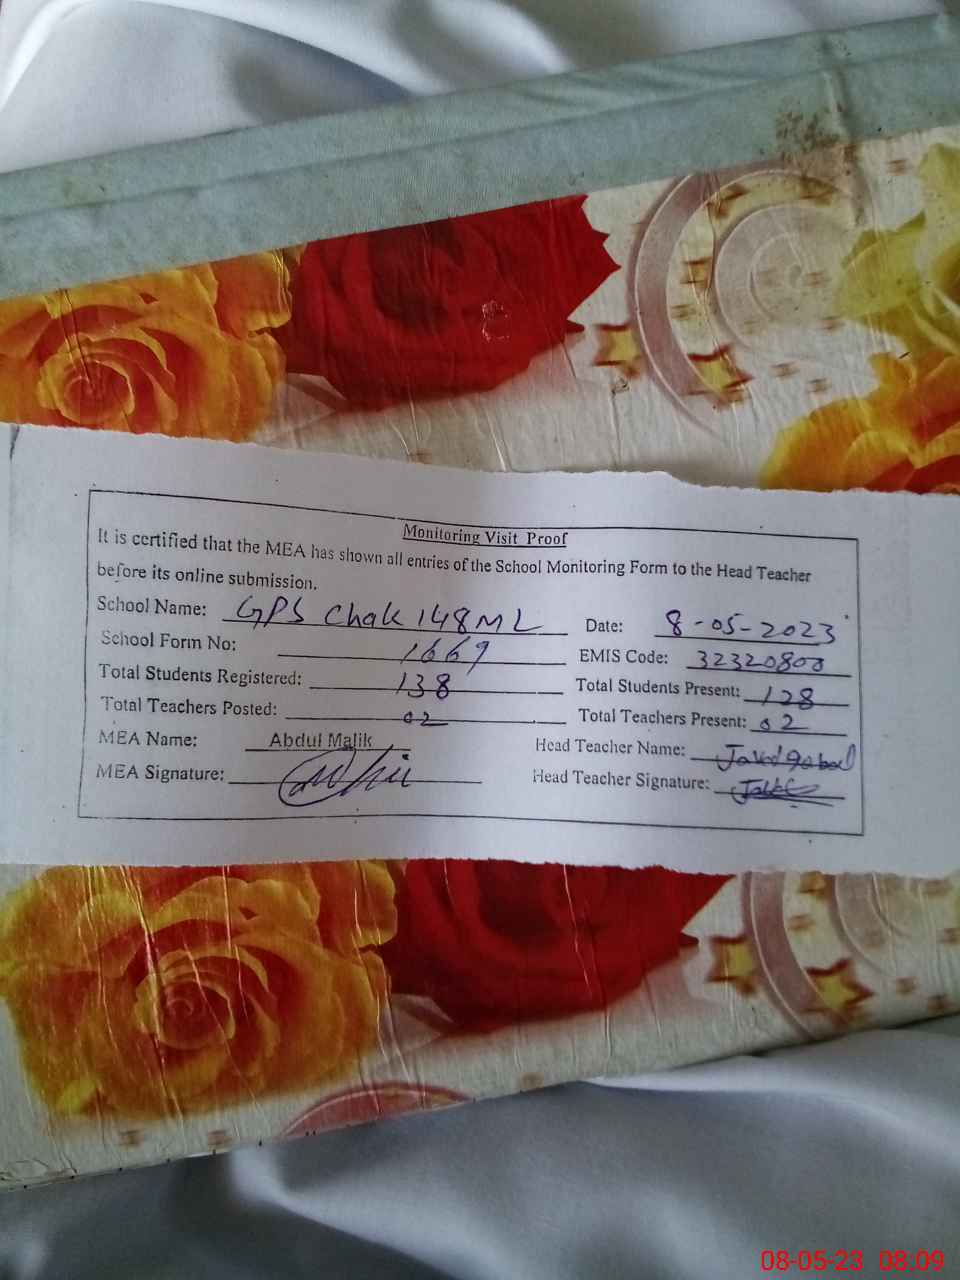 Monitoring Visit Proof
It is certified that the MEA has shown all entries of the School Monitoring Form to the Head Teacher
before its online submission.
School Name: GPS Chak 148 ML Date: 8-05-2023
School Form No: 1669 EMIS Code: 32320800
Total Students Registered: 138 Total Students Present: 128
Total Teachers Posted: 02 Total Teachers Present: 02
MEA Name: Abdul Malik Head Teacher Name: Javed Iqbal
MEA Signature: Head Teacher Signature:
08-05-23 08:09